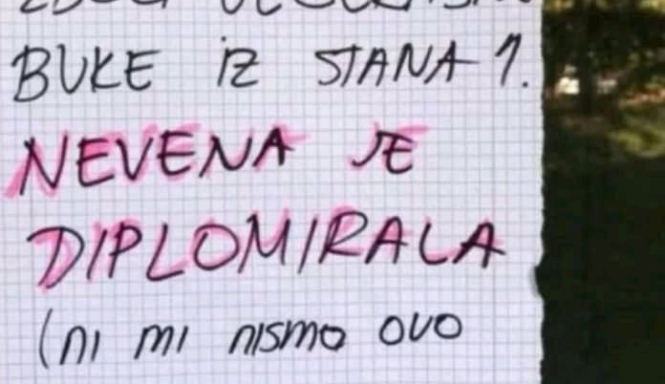 BUKE IZ STANA 1.
NEVENA JE
DIPLOMIRALA
(ni mi nismo ovo